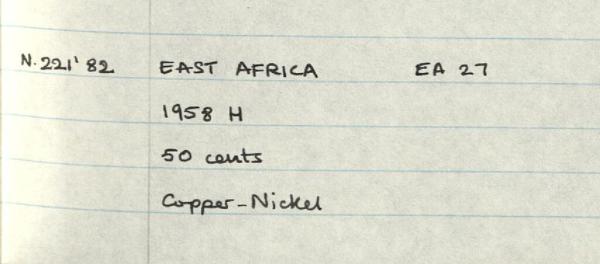 N.221'82 EAST AFRICA EA 27
1958 H
50 cents
Copper-Nickel